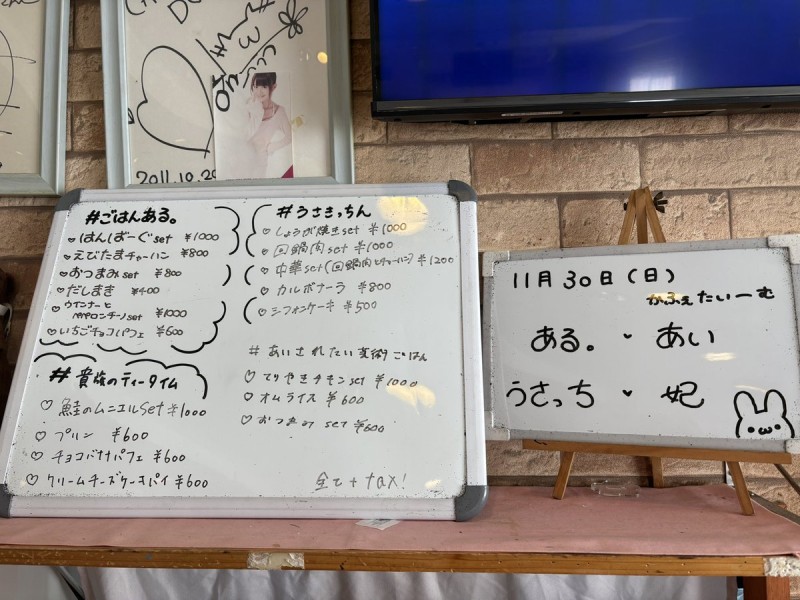 2011.10.29
#ごはんある。
♡はんばーぐset ¥1000
♡えびたまチャーハン ¥800
♡おつまみset ¥800
♡だしまき ¥400
♡ウインナーと
ペペロンチーノset ¥1000
♡いちごチョコパフェ ¥600
#貴族のティータイム
♡鮭のムニエルset ¥1000
♡プリン ¥600
♡チョコバナナパフェ ¥600
♡クリームチーズケーキパイ ¥600
#うさきっちん
♡しょうが焼きset ¥1000
♡回鍋肉set ¥1000
♡中華set(回鍋肉とチャーハン) ¥1200
♡カルボナーラ ¥800
♡シフォンケーキ ¥500
#あいされたい度術ごはん
♡てりやきチキンset ¥1000
♡オムライス ¥600
♡おつまみset ¥600
全て+tax!
11月30日(日)
かふぇたいーむ
ある。♥あい
うさっち♥妃